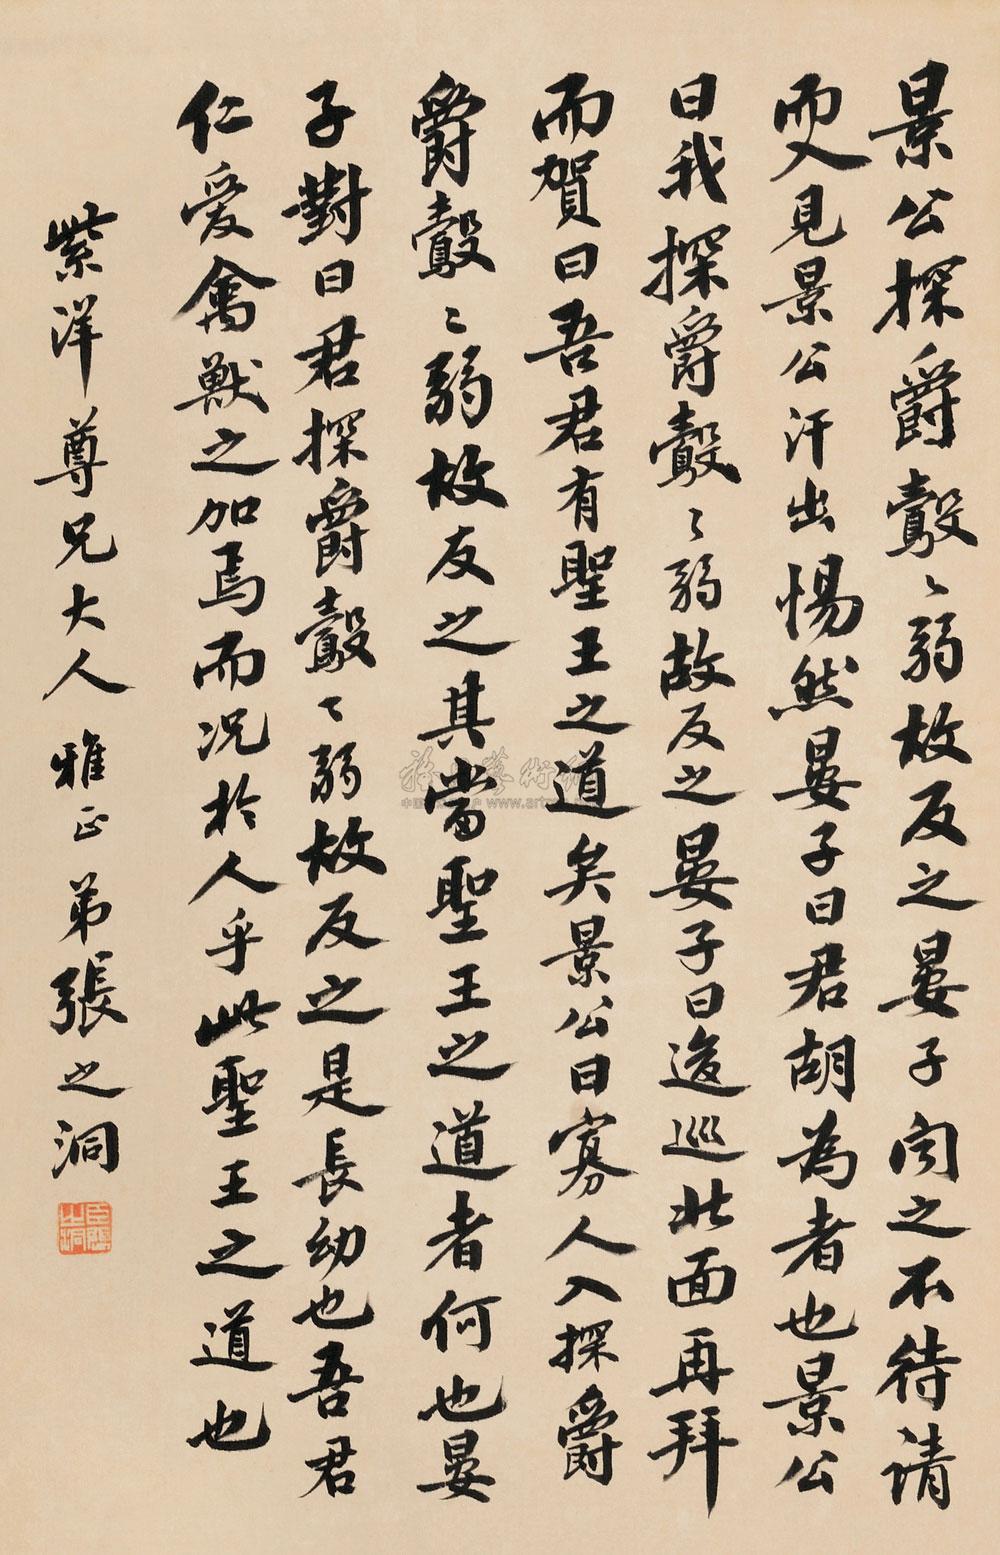 景公探爵鷇〻弱故反之晏子闻之不待请
而入見景公汗出惕然晏子曰君胡為者也景公
曰我探爵鷇〻弱故反之晏子曰逡巡北面再拜
而賀曰吾君有聖王之道矣景公曰寡人入探爵
爵鷇〻弱故反之其當聖王之道者何也晏
子對曰君探爵鷇〻弱故反之是長幼也吾君
仁爱禽獸之加焉而况於人乎此聖王之道也
紫洋尊兄大人 雅正 弟張之洞
www.art